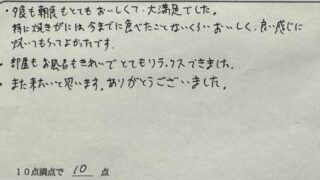 ・夕食も朝食もとてもおいしくて、大満足でした。
特に焼きガニは、今までに食べたことないくらいおいしく、良い感じに
焼いてもらってよかったです。
・部屋もお風呂もきれいでとてもリラックスできました。
・また来たいと思います。ありがとうございました。
10点満点で 10 点